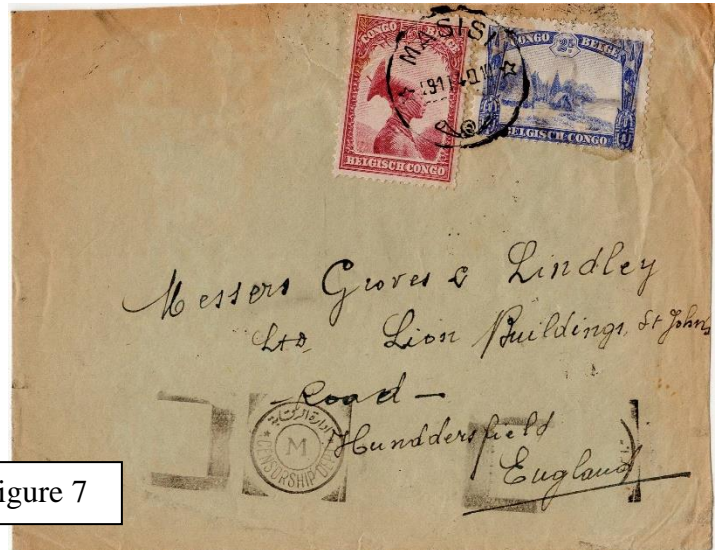 CONGO BELGE
BELGISCH CONGO
MASISI
CONGO BELGE
BELGISCH CONGO
Messers Groves & Lindley
Ltd. Lion Buildings, St Johns
Road
Hunddersfield
England
M
CENSORSHIP DEPT
igure 7